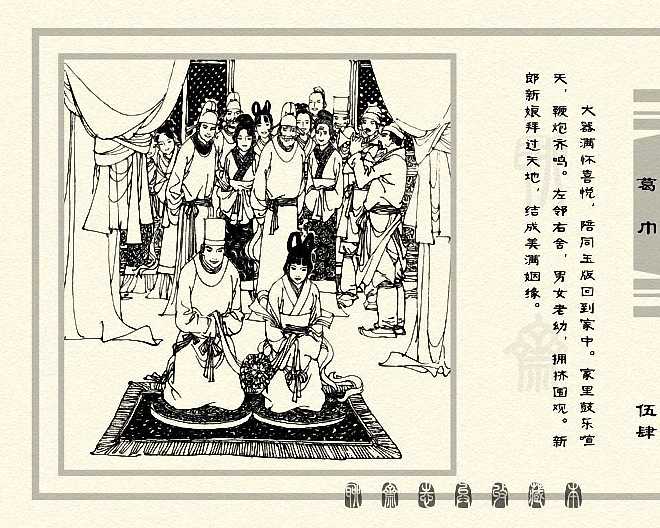 大器满怀喜悦，陪同玉版回到家中。家里鼓乐喧
天，鞭炮齐鸣。左邻右舍，男女老幼，拥挤围观。新
郎新娘拜过天地，结成美满姻缘。
葛巾
伍肆